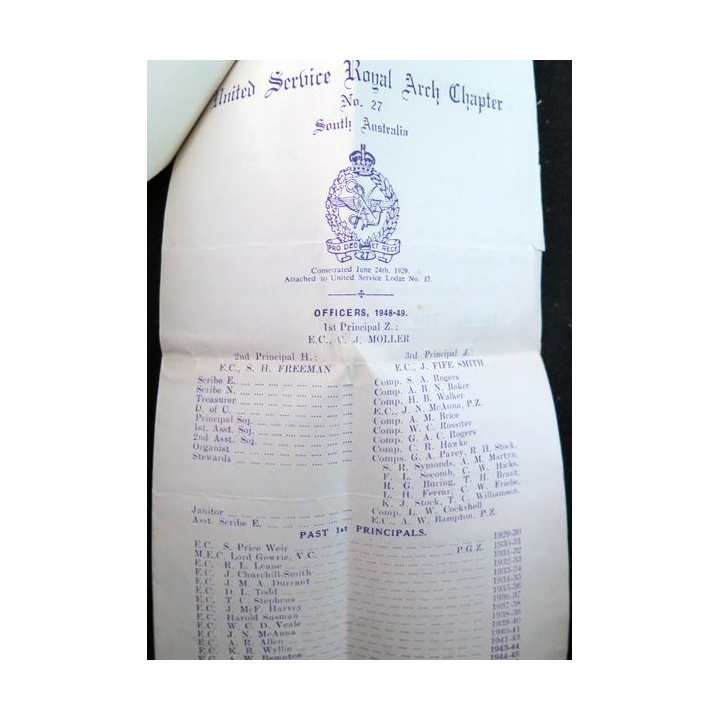 United Service Royal Arch Chapter
No. 27
South Australia
PRO DEO ET REGE
27
Consecrated June 24th, 1929.
Attached to United Service Lodge No. 37.
OFFICERS, 1948-49.
1st Principal Z.:
E.C., C. J. MOLLER
2nd Principal H.: 3rd Principal J.:
E.C., S. H. FREEMAN E.C., J. FIFE SMITH
Scribe E. Comp. S. A. Rogers
Scribe N. Comp. A. B. N. Baker
Treasurer Comp. H. B. Walker
D. of C. E.C., J. N. McAnna, P.Z.
Principal Soj. Comp. A. M. Brice
1st. Asst. Soj. Comp. W. C. Rossiter
2nd Asst. Soj. Comp. G. A. C. Rogers
Organist Comp. C. R. Hawke
Stewards Comps. G. A. Pavey, R. H. Stock,
S. R. Symonds, A. M. Martyn,
F. L. Secomb, C. W. Hacks,
R. G. Buring, T. H. Brant,
L. H. Ferrar, C. W. Friebe,
K. J. Stock, T. C. Williamson.
Janitor Comp. L. W. Cockshell
Asst. Scribe E. E.C., A. W. Bampton, P.Z.
PAST 1st PRINCIPALS.
E.C. S. Price Weir 1929-30
M.E.C. Lord Gowrie, V.C. P.G.Z. 1930-31
E.C. R. L. Leane 1931-32
E.C. J. Churchill-Smith 1932-33
E.C. J. M. A. Durrant 1933-34
E.C. D. L. Todd 1934-35
E.C. T. C. Stephens 1935-36
E.C. J. McF. Harvey 1936-37
E.C. Harold Susman 1937-38
E.C. W. C. D. Veale 1938-39
E.C. J. N. McAnna 1939-40
E.C. A. R. Allen 1940-41
E.C. K. R. Wyllie 1941-43
E.C. A. W. Bampton 1943-44
1944-45